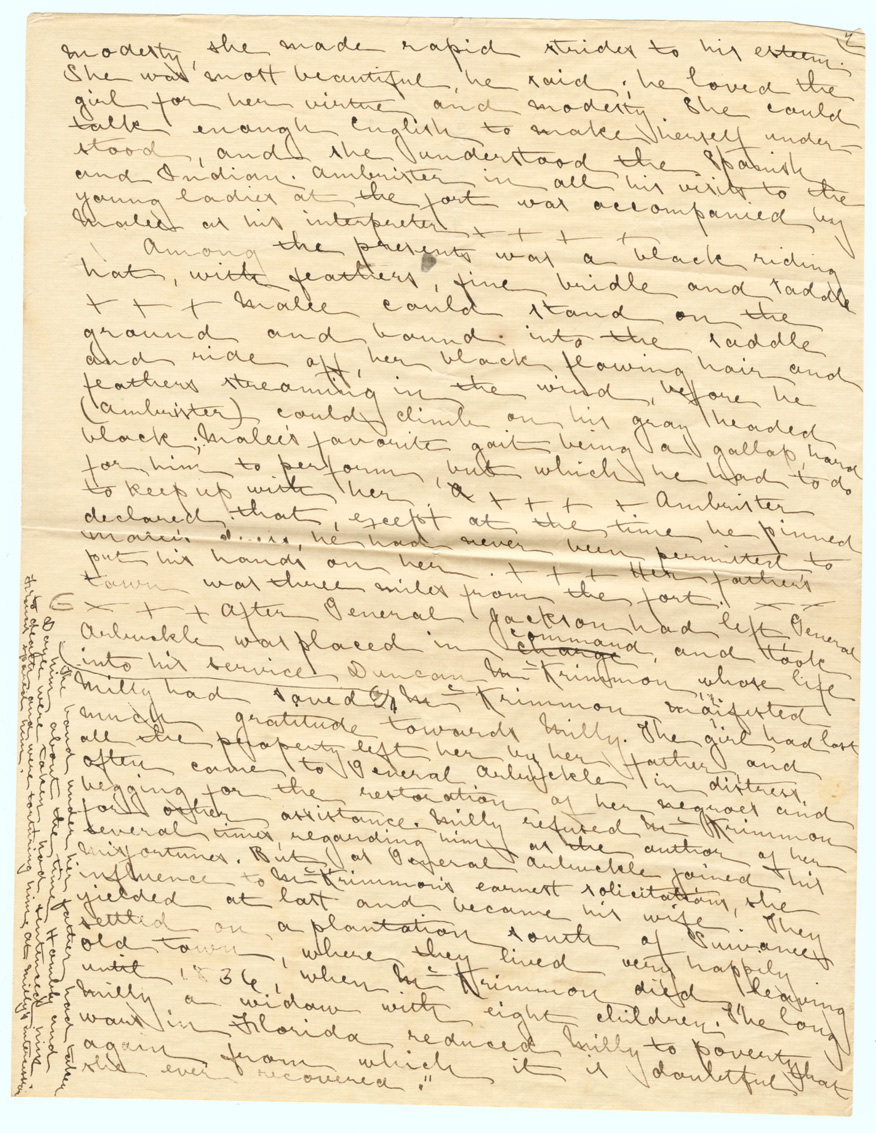 modesty, she made rapid strides to his esteem.
She was most beautiful, he said; he loved the
girl for her virtue and modesty. She could
talk enough English to make herself under=
stood, and she understood the Spanish
and Indian. Ambrister in all his visits to the
young ladies at the fort was accompanied by
Malee as his interpreter + + + +
Among the presents was a black riding
hat, with feathers, fine bridle and saddle
+ + + Malee could stand on the
ground and bound into the saddle
and ride off, her black flowing hair and
feathers streaming in the wind, before he
(Ambrister) could climb on his gray headed
black; Malee's favorite gait being a gallop, hard
for him to perform, but which he had to do
to keep up with her. + + + + Ambrister
declared that, except at the time he pinned
he had never been permitted to
put his hands on her. + + + Her father's
town was three miles from the fort. — —
+ + + After General Jackson had left, General
Arbuckle was placed in charge command, and took
into his service Duncan McKrimmon, whose life
Milly had saved. McKrimmon manifested
much gratitude towards Milly. The girl had lost
all the property left her by her father, and
often came to General Arbuckle in distress,
begging for the restoration of her negroes and
for other assistance. Milly refused McKrimmon
several times, regarding him as the author of her
misfortunes. But, as General Arbuckle joined his
influence to McKrimmon's earnest solicitations, she
yielded at last and became his wife. They
settled on a plantation south of Suwanee
old town, where they lived very happily
until 1836, when McKrimmon died, leaving
Milly a widow with eight children. The long
wars in Florida reduced Milly to poverty
again from which it is doubtful that
she ever recovered."
(The band under her father had taken
him about the time Hambly and
Doyle were taken, had sentenced him
to death and were torturing him, at Milly's intercession
spared him.